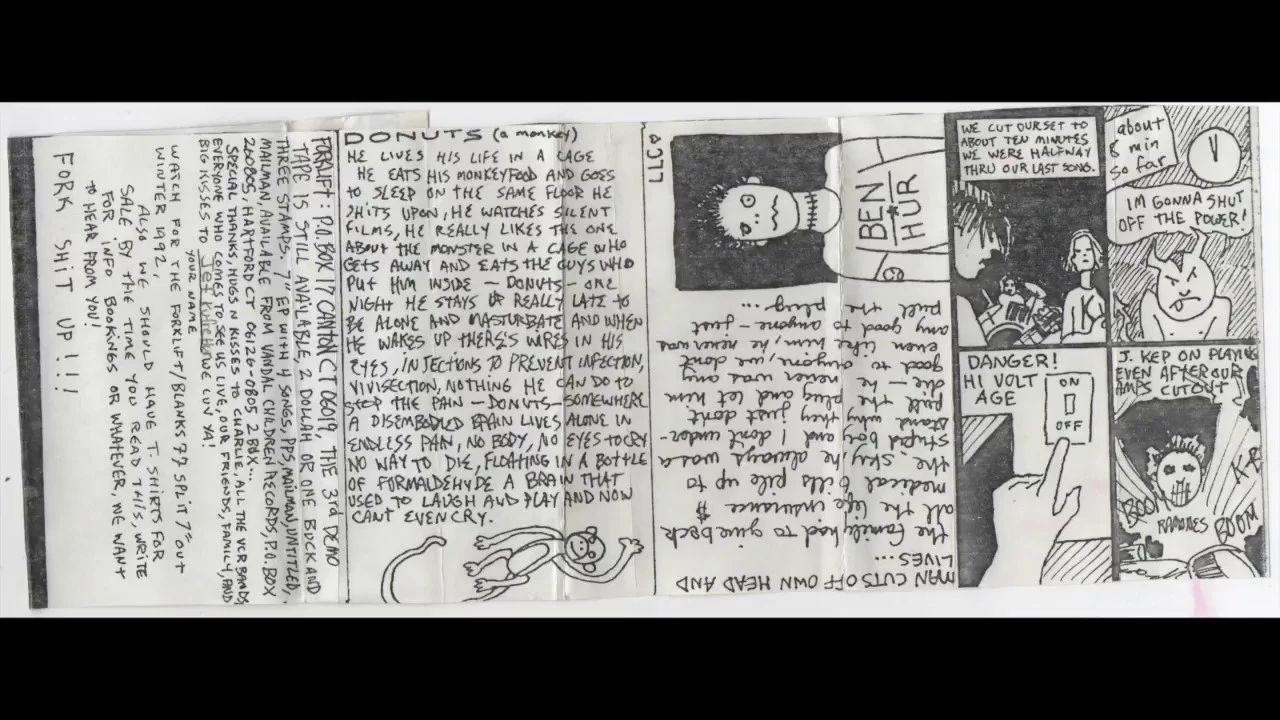 FORKLIFT: P.O. BOX 17 CANTON CT 06019, THE 3rd DEMO
TAPE IS STILL AVAILABLE, 2 DOLLAH OR ONE BUCK AND
THREE STAMPS 7" EP WITH 4 SONGS, PPS, MAILMAN, UNTITLED,
MAILMAN, AVAILABLE FROM VANDAL CHILDREN RECORDS, P.O. BOX
260805, HARTFORD CT 06126-0805 2 BUX...
SPECIAL THANKS, HUGS N KISSES TO CHARLIE, ALL THE VCR BANDS,
EVERYONE WHO COMES TO SEE US LIVE, OUR FRIENDS, FAMILY, AND
BIG KISSES TO WE LUV YA!
YOUR NAME
WATCH FOR THE FORKLIFT/BLANKS 77 SPLIT 7" OUT
WINTER 1992,
ALSO WE SHOULD HAVE T. SHIRTS FOR
SALE BY THE TIME YOU READ THIS, WRITE
FOR INFO BOOKINGS OR WHATEVER, WE WANT
TO HEAR FROM YOU!
FORK SHIT UP!!!
DONUTS (a monkey)
HE LIVES HIS LIFE IN A CAGE
HE EATS HIS MONKEYFOOD AND GOES
TO SLEEP ON THE SAME FLOOR HE
SHITS UPON, HE WATCHES SILENT
FILMS, HE REALLY LIKES THE ONE
ABOUT THE MONSTER IN A CAGE WHO
GETS AWAY AND EATS THE GUYS WHO
PUT HIM INSIDE — DONUTS — ONE
NIGHT HE STAYS UP REALLY LATE TO
BE ALONE AND MASTURBATE AND WHEN
HE WAKES UP THERES WIRES IN HIS
EYES, INJECTIONS TO PREVENT INFECTION,
VIVISECTION, NOTHING HE CAN DO TO
STOP THE PAIN — DONUTS — SOMEWHERE
A DISEMBODIED BRAIN LIVES ALONE IN
ENDLESS PAIN, NO BODY, NO EYES TO CRY
NO WAY TO DIE, FLOATING IN A BOTTLE
OF FORMALDEHYDE A BRAIN THAT
USED TO LAUGH AND PLAY AND NOW
CANT EVEN CRY.
MAN CUTS OFF OWN HEAD AND
LIVES...
the family had to give back
all the life insurance $
medical bills pile up to
the sky, he always was a
stupid boy and I don't under-
stand why they just don't
pull the plug and let him
die - he never was any
good to anyone, we dont
even like him, he never was
any good to anyone - just
pull the plug...
BEN
HUR
WE CUT OUR SET TO
ABOUT TEN MINUTES
WE WERE HALFWAY
THRU OUR LAST SONG.
K
about
8 min
so far
IM GONNA SHUT
OFF THE POWER!
DANGER!
HI VOLT
AGE
ON
OFF
J. KEP ON PLAYING
EVEN AFTER OUR
AMPS CUT OUT
BOOM
RAMONES
BOOM